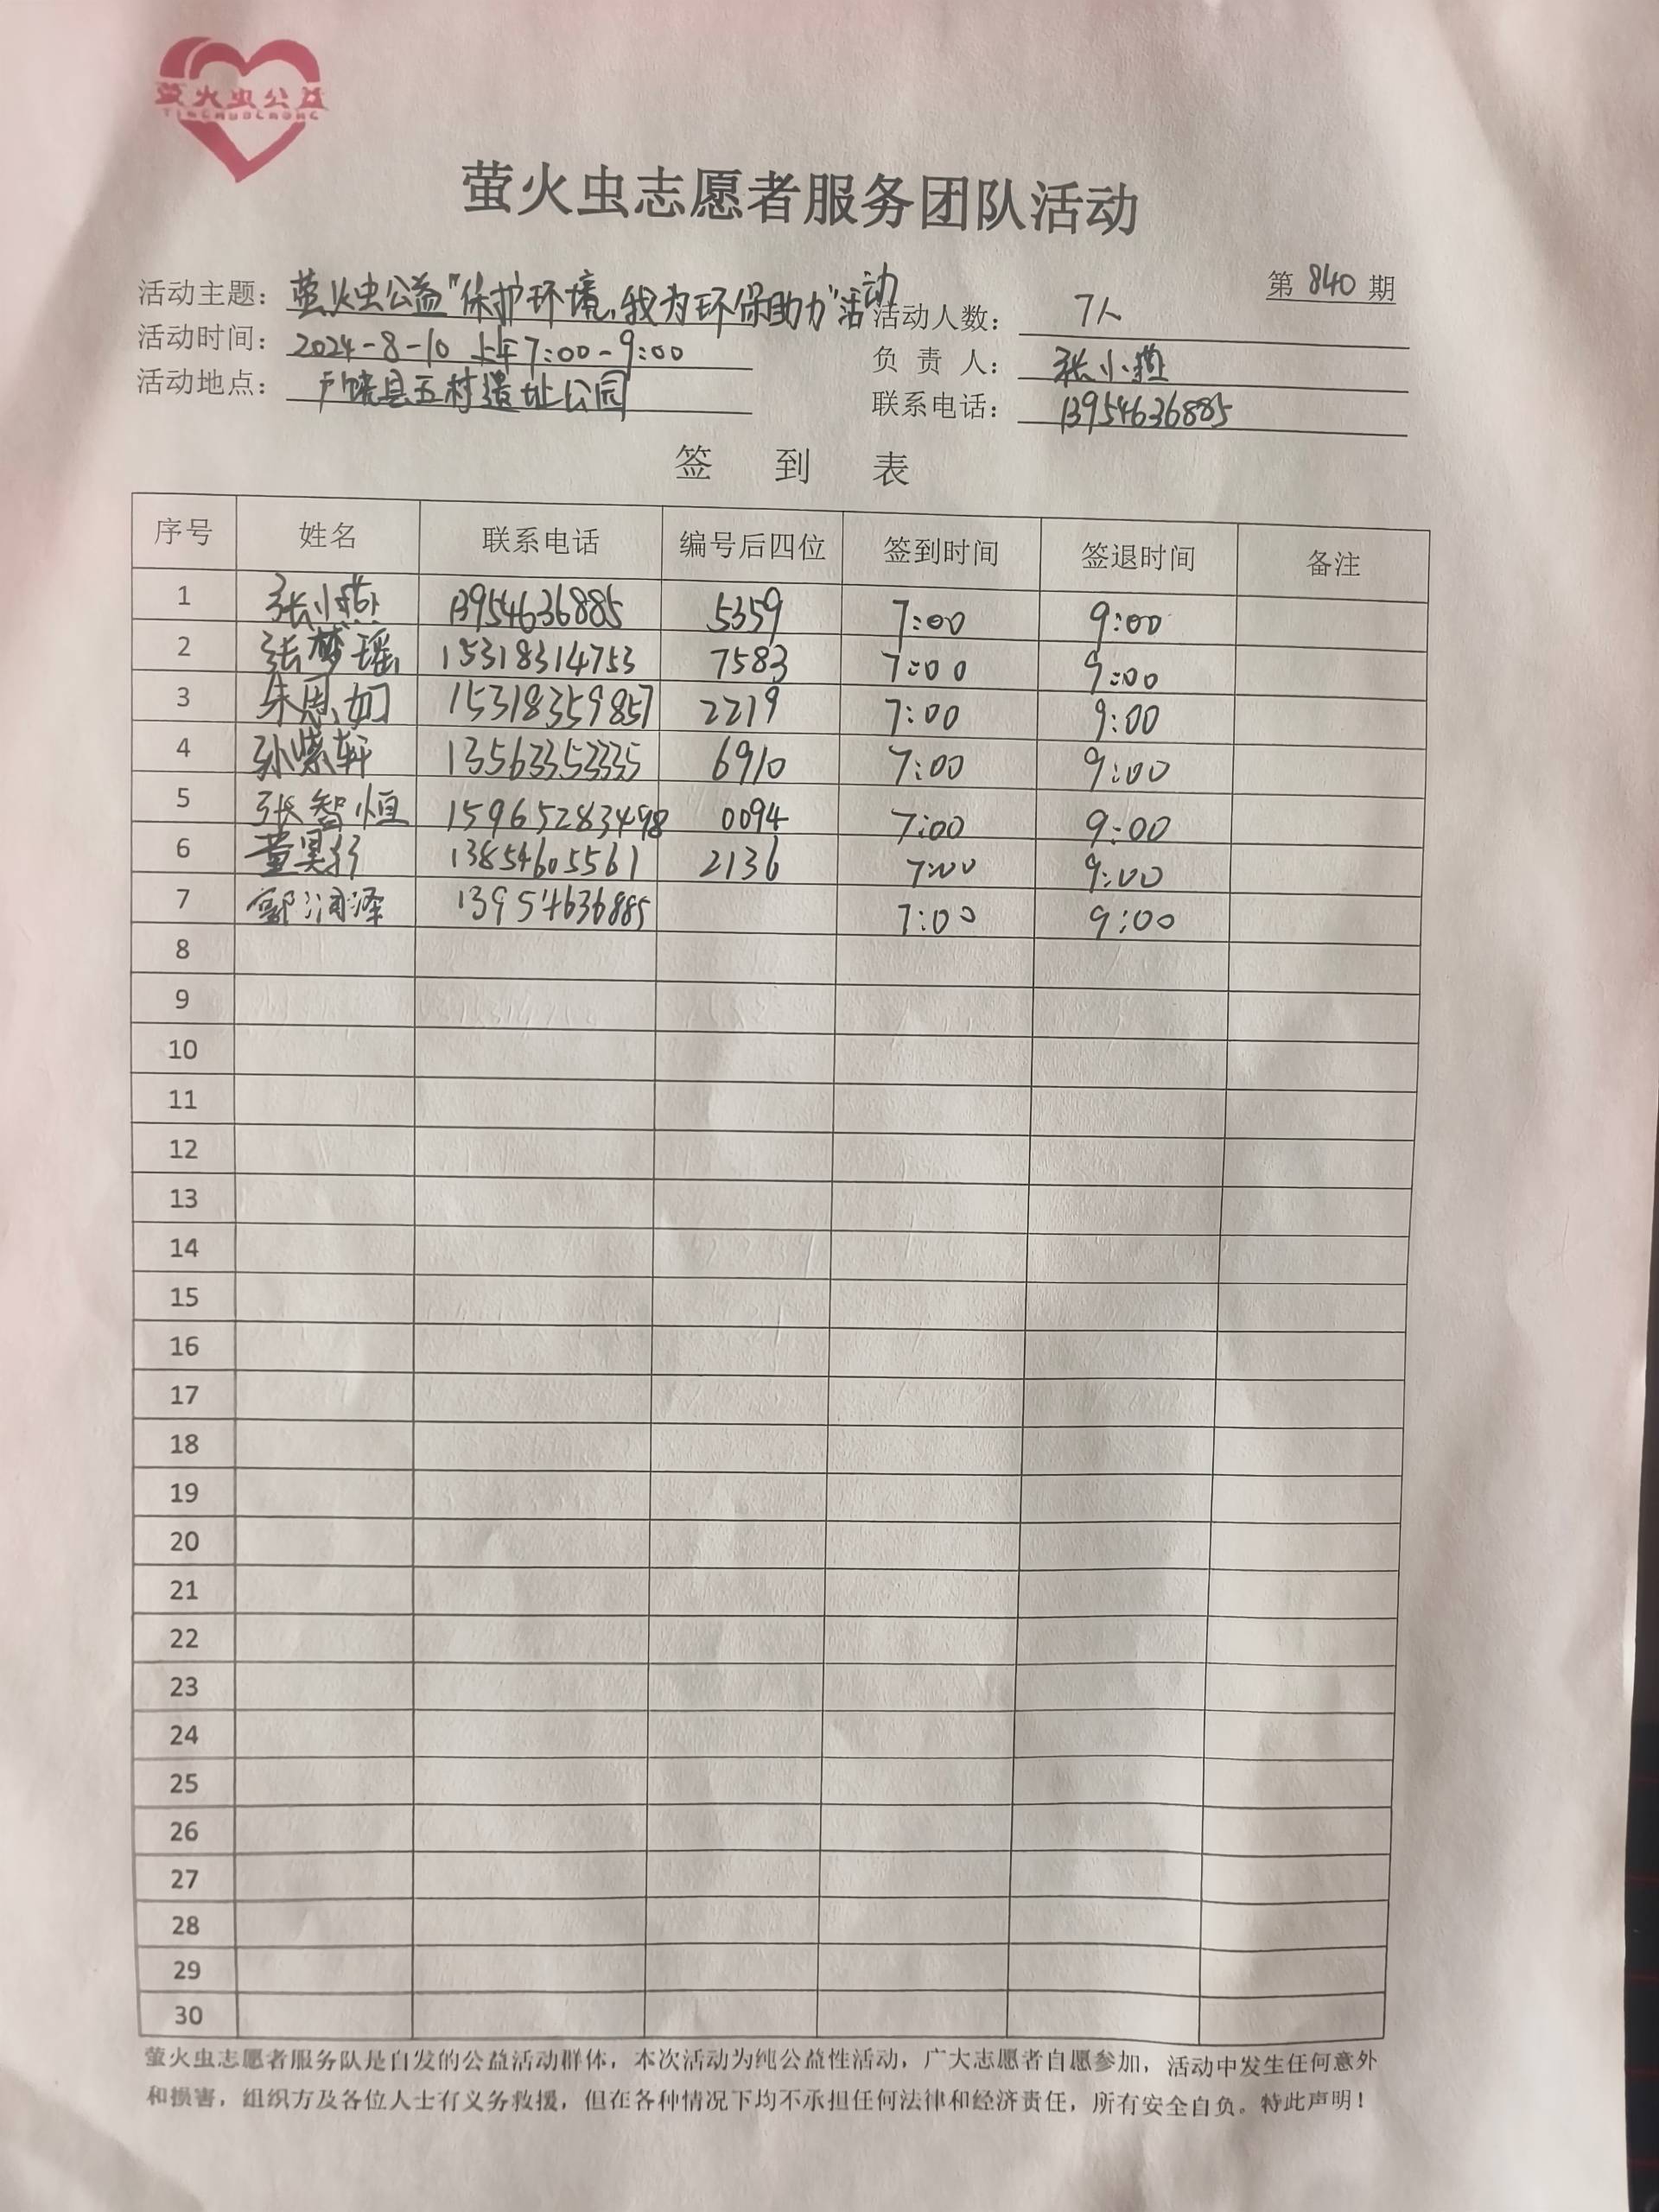 萤火虫公益
YINGHUOCHONG
萤火虫志愿者服务团队活动
第 840 期
活动主题： 萤火虫公益"保护环境,我为环保助力"活动
活动人数： 7人
活动时间： 2024-8-10 上午7:00-9:00
负 责 人： 张小燕
活动地点： 广饶县五村遗址公园
联系电话： 13954636885
签 到 表
序号 姓名 联系电话 编号后四位 签到时间 签退时间 备注
1 张小燕 13954636885 5359 7:00 9:00
2 张梦瑶 15318314753 7583 7:00 9:00
3 朱恩如 15318359857 2219 7:00 9:00
4 孙紫轩 13563353335 6910 7:00 9:00
5 张智恒 15965283498 0094 7:00 9:00
6 董昊 13854605561 2136 7:00 9:00
7 润泽 13954636885 7:00 9:00
8
9
10
11
12
13
14
15
16
17
18
19
20
21
22
23
24
25
26
27
28
29
30
萤火虫志愿者服务队是自发的公益活动群体，本次活动为纯公益性活动，广大志愿者自愿参加，活动中发生任何意外
和损害，组织方及各位人士有义务救援，但在各种情况下均不承担任何法律和经济责任，所有安全自负。特此声明！